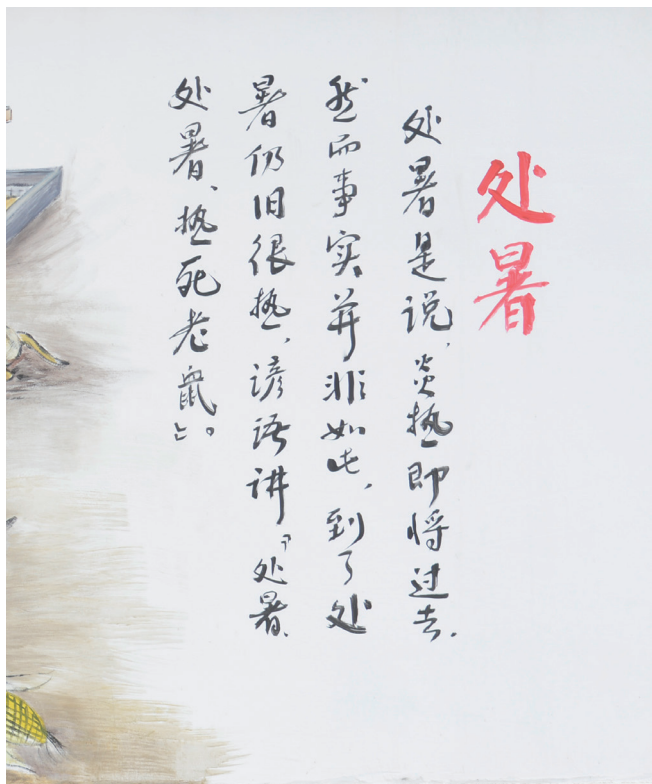 处暑
处暑是说,炎热即将过去.
然而事实并非如此,到了处
暑仍旧很热,谚语讲『处暑、
处暑、热死老鼠』。